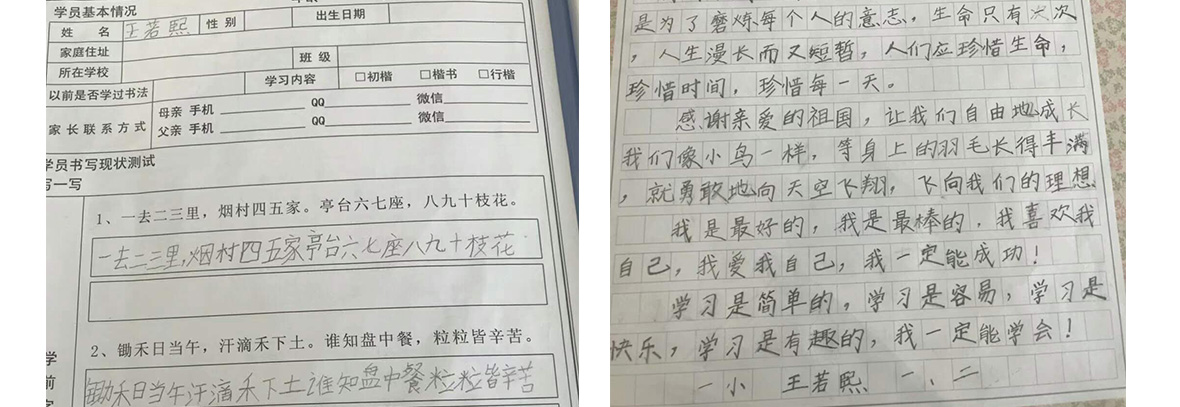 学员基本情况
出生日期
姓 名 王若熙 性 别
家庭住址
班 级
所在学校
学习内容 □初楷 □楷书 □行楷
以前是否学过书法
母亲 手机 QQ 微信
家长联系方式
父亲 手机 QQ 微信
学员书写现状测试
写一写
1、一去二三里，烟村四五家。亭台六七座，八九十枝花。
一去二三里，烟村四五家亭台六七座八九十枝花
2、锄禾日当午，汗滴禾下土。谁知盘中餐，粒粒皆辛苦。
锄禾日当午汗滴禾下土谁知盘中餐粒粒皆辛苦
学
前
是为了磨炼每个人的意志，生命只有次
，人生漫长而又短暂，人们应珍惜生命，
珍惜时间，珍惜每一天。
感谢亲爱的祖国，让我们自由地成长
我们像小鸟一样，等身上的羽毛长得丰满
，就勇敢地向天空飞翔，飞向我们的理想
我是最好的，我是最棒的，我喜欢我
自己，我爱我自己，我一定能成功！
学习是简单的，学习是容易，学习是
快乐，学习是有趣的，我一定能学会！
一小 王若熙 一、二